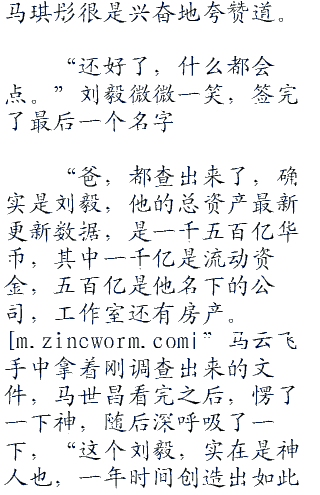 马琪彤很是兴奋地夸赞道。
“还好了，什么都会
点。”刘毅微微一笑，签完
了最后一个名字
“爸，都查出来了，确
实是刘毅，他的总资产最新
更新数据，是一千五百亿华
币，其中一千亿是流动资
金，五百亿是他名下的公
司，工作室还有房产。
[m.zincworm.com|”马云飞
手中拿着刚调查出来的文
件，马世昌看完之后，愣了
一下神，随后深呼吸了一
下，“这个刘毅，实在是神
人也，一年时间创造出如此